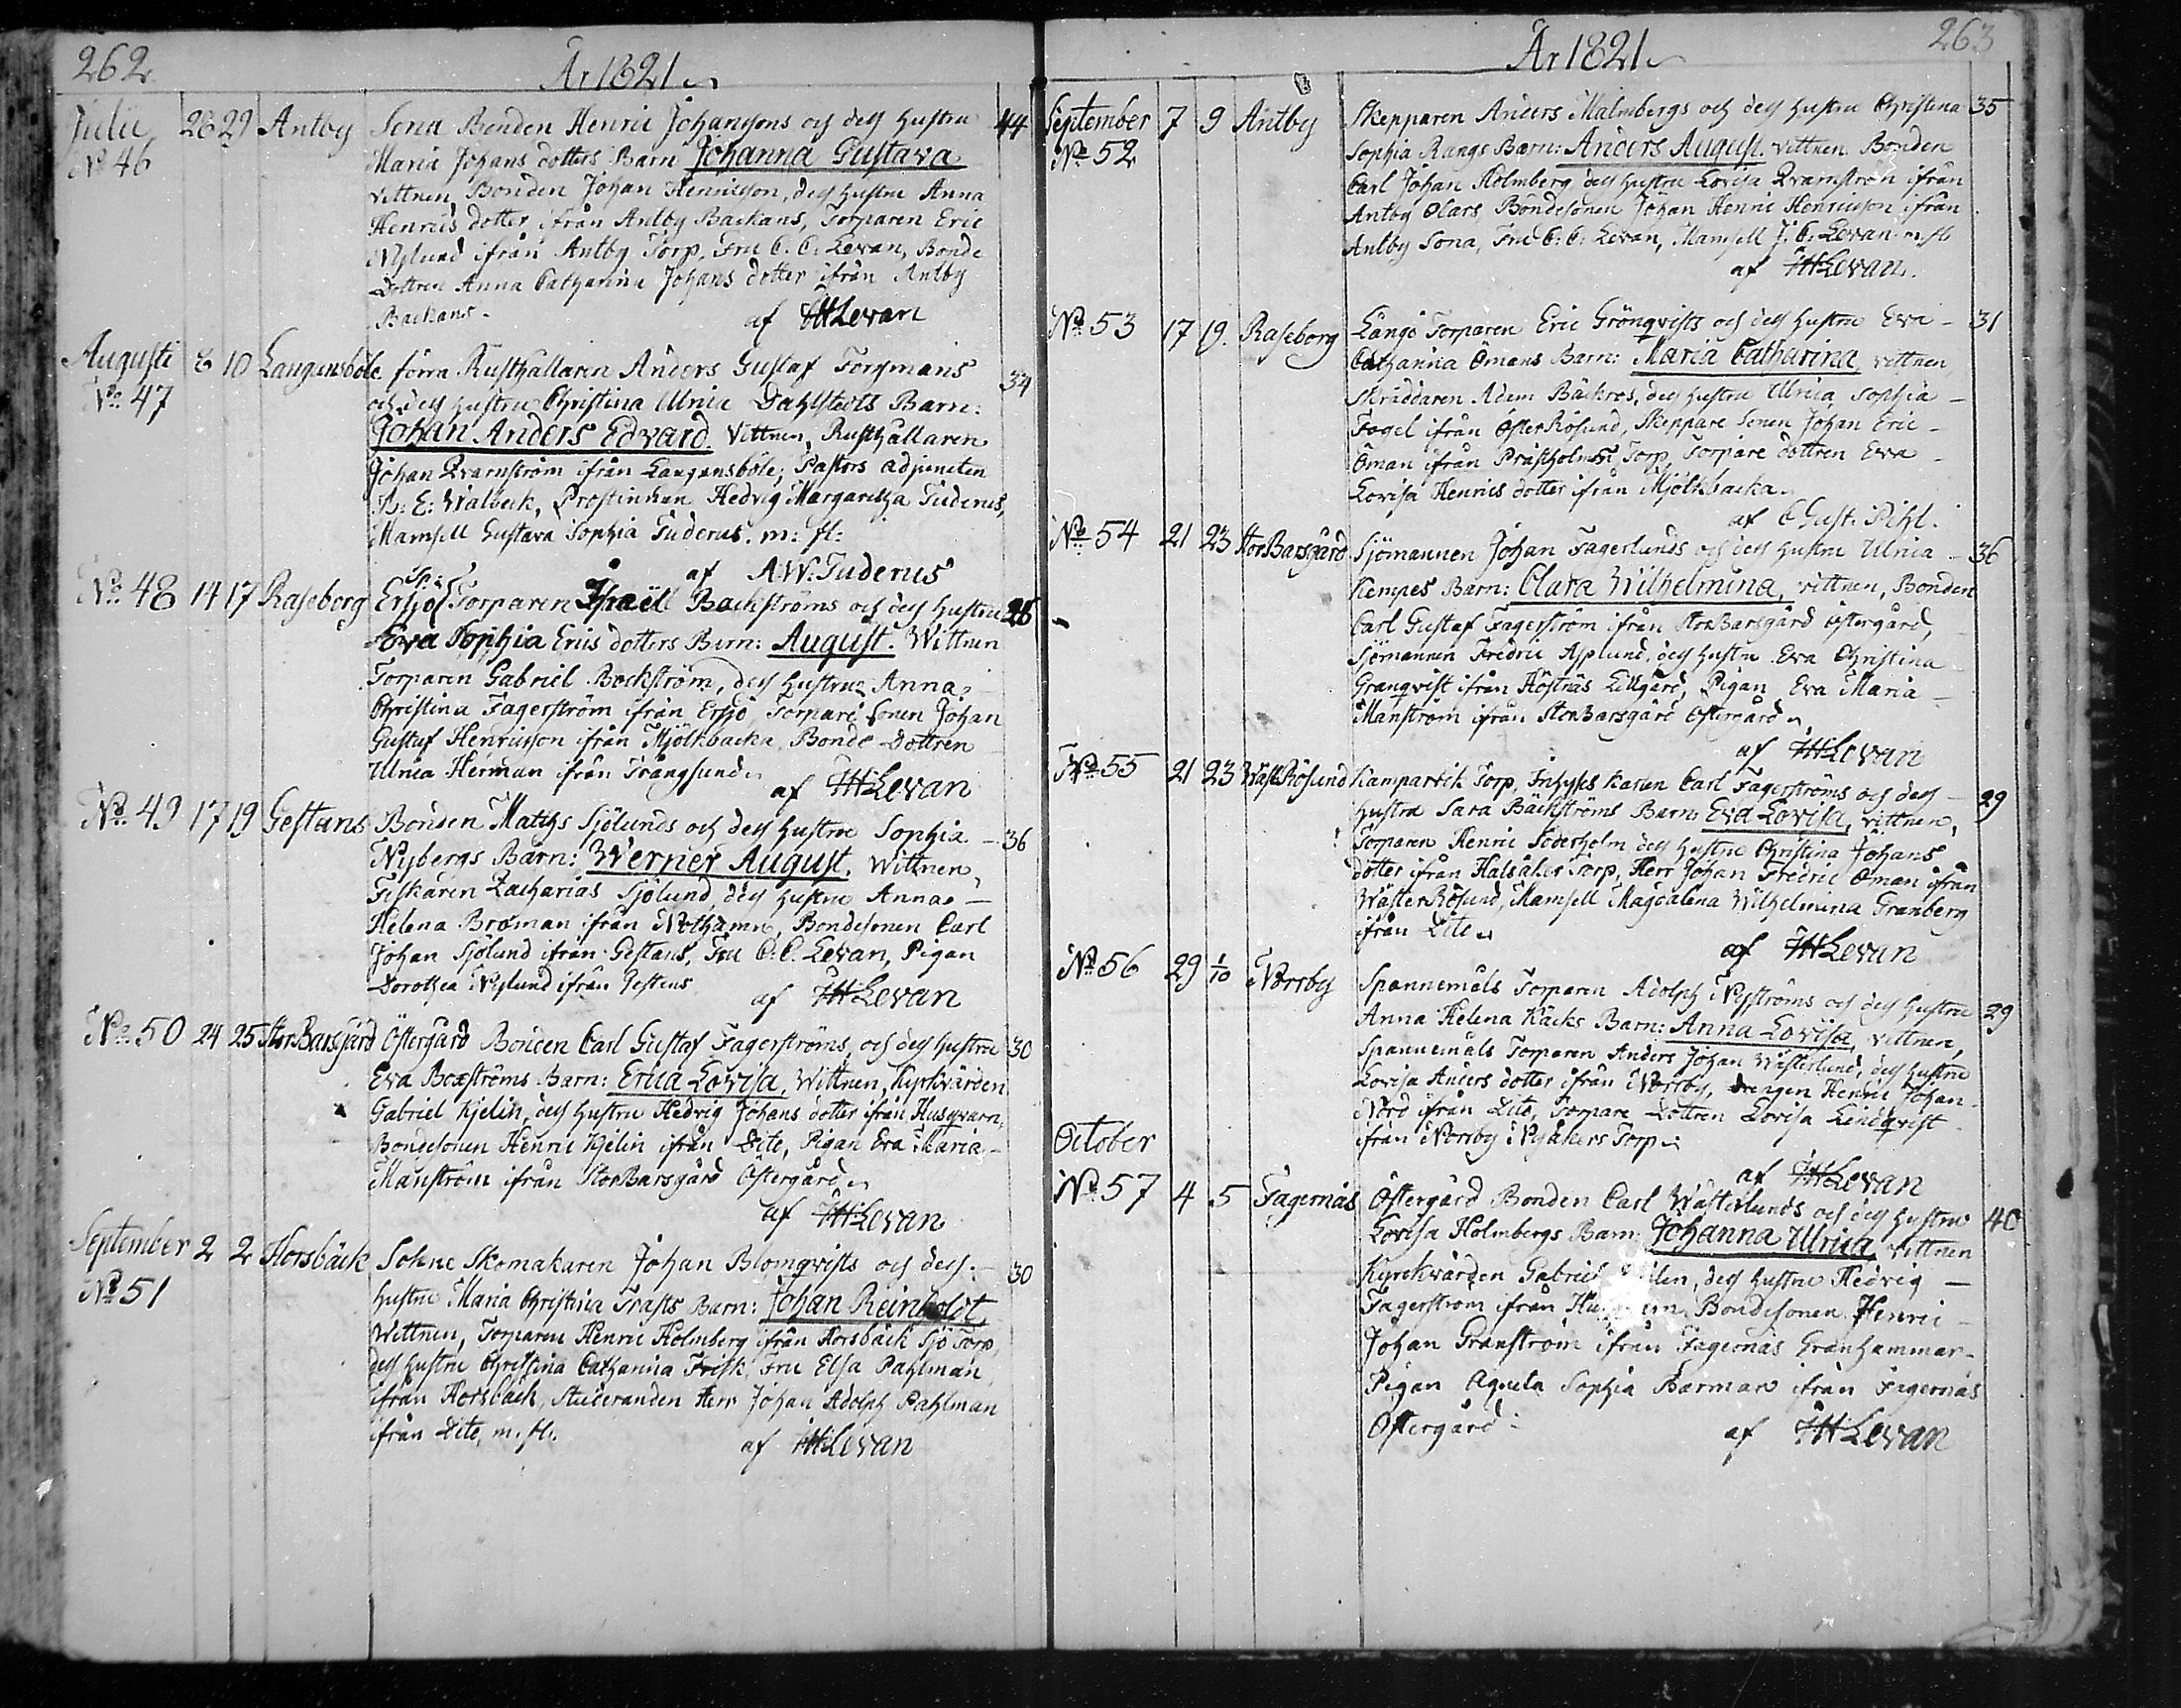 262.
År 1821
Julii 28 29 Antby Sona Bonden Henric Johansons och dess hustru 44
No 46 Maria Johans dotters Barn Johanna Gustava
vittnen, Bonden Johan Henricsson, dess hustru Anna
Henrics dotter ifrån Antby Backans, Torparen Eric
Nylund ifrån Antby Torp, Fru C. C. Levan, Bonde
Dottren Anna Catharina Johans dotter ifrån Antby
Backans. af Levan
Augusti 8 10 Langansböle förra Rusthållaren Anders Gustaf Forsmans 34
No 47 och dess hustru Christina Ulrica Dahlstedts Barn:
Johan Anders Edvard. Vittnen, Rusthållaren
Johan Qvarnström ifrån Langansböle, Pastors adjuncten
E: Walbeck, Prostinnan Hedvig Margaretha Tuderus,
Mamsell Gustava Sophia Tuderus. m: fl:
af A.W. Tuderus
No 48 14 17 Raseborg Ersjö Torparen Israël Backströms och dess hustru
Eva Sophia Erics dotters Barn: August. Wittnen
Torparen Gabriel Backström, dess hustru Anna
Christina Fagerström ifrån Ersjö, Torpare Sonen Johan
Gustaf Henricsson ifrån Mjölkbacka, Bonde Dottren
Ulrica Herman ifrån Trångsund
af Levan
No 49 17 19 Gestans Bonden Matths Sjölunds och dess hustru Sophia 36
Nybergs Barn: Werner August. Wittnen,
Fiskaren Zacharias Sjölund, dess hustru Anna
Helena Broman ifrån Nothamn, Bondesonen Carl
Johan Sjölund ifrån Gestans, Fru C. C. Levan, Pigan
Dorothea Nylund ifrån Gestens
af Levan
No 50 24 25 StorBarsgård Östergård Bonden Carl Gustaf Fagerströms och dess hustru 30
Eva Boxströms Barn: Erica Lovisa, Wittnen, Kyrkvärden
Gabriel Kjelin, dess hustru Hedvig Johans dotter ifrån Husqvarn,
Bondesonen Henric Kjelin ifrån Lite, Pigan Eva Maria
Manström ifrån StorBarsgård Östergård
af Levan
September 2 2 Horsbäck Sohne Skomakaren Johan Blomqvists och dess 30
No 51 hustru Maria Christina Trasts Barn: Johan Reinholdt
Wittnen, Torparen Henric Holmberg ifrån Horsbäck Sjö Torp,
dess hustru Christina Catharina Frisk, Fru Elsa Pahlman
ifrån Horsbäck, Studeranden Herr Johan Adolph Pahlman
ifrån Lite, m. fl.
af Levan
263
År 1821
September 7 9 Antby Skepparen Anders Malmbergs och dess hustru Christina 35
No 52 Sophia Rangs Barn: Anders August. vittnen Bonden
Carl Johan Holmberg dess hustru Lovisa Qvarnström ifrån
Antby Olars Bondesonen Johan Henric Henricsson ifrån
Antby Sona, Fru C: C: Levan, Mamsell J. C. Levan m. fl.
af Levan.
No 53 17 19. Raseborg Långö Torparen Eric Grönqvists och dess hustru Eva 31
Catharina Ömans Barn: Maria Catharina, vittnen,
Skräddaren Adam Bäckros, dess hustru Ulrica Sophia
Fogel ifrån ÖsterRösund, Skeppare Sonen Johan Eric
Öman ifrån Prästholmen Torp, Torpare dottren Eva
Lovisa Henrics dotter ifrån Mjölkbacka.
af C Gust. Pihl.
No 54 21 23 StorBarsgård Sjömannen Johan Fagerlunds och dess hustru Ulrica 36
Kempes Barn: Clara Wilhelmina, vittnen, Bonden
Carl Gustaf Fagerström ifrån StorBarsgård Östergård,
Sjömannen Fredric Asplund, dess hustru Eva Christina
Granqvist ifrån Höstnäs Lillgård, Pigan Eva Maria
Manström ifrån StorBarsgård Östergård
af Levan
No 55 21 23 WästRösund Kamparvik Torp, Inhyses Karlen Carl Fagerströms och dess 29
hustru Sara Bäckströms Barn Eva Lovisa, vittnen,
Torparen Henric Söderholm dess hustru Christina Johans
dotter ifrån Halsåker Torp, Herr Johan Fredric Öman ifrån
WästerRösund, Mamsell Magdalena Wilhelmina Granberg
ifrån Lite
af Levan
No 56 29 1/10 Norrby Spannemåls Torparen Adolph Nyströms och dess hustru 29
Anna Helena Käcks Barn: Anna Lovisa, vittnen,
Spannemåls Torparen Anders Johan Wästerlund, dess hustru
Lovisa Anders dotter ifrån Norrby, drengen Henric Johan
Nord ifrån Lite, Torpare Dottren Lovisa Lindqvist
ifrån Norrby Nyåkers Torp
af Levan
October
No 57 4 5 Fagernäs Östergård Bonden Carl Wästerlunds och dess hustru 40
Lovisa Holmbergs Barn: Johanna Ulrica, vittnen
Kyrckvärden Gabriel dess hustru Hedvig
Fagerström ifrån Bondesonen Henric
Johan Granström ifrån Fagernäs Granhammar
Pigan Agneta Sophia Barman ifrån Fagernäs
Östergård
af Levan